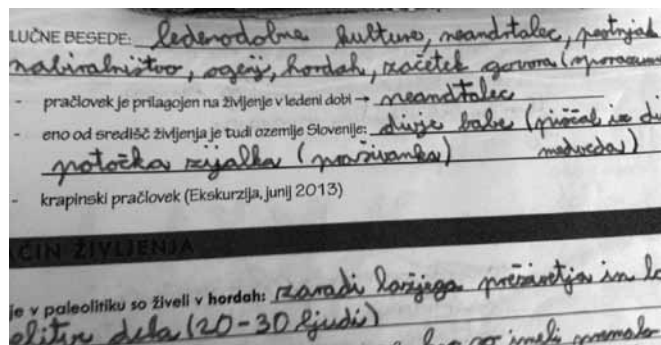 LUČNE BESEDE: ledenodobne kulture, neandrtalec, pestnjak
nabiralništvo, ogenj, hordah, začetek govora (sporazum
- pračlovek je prilagojen na življenje v ledeni dobi → neandtalec
- eno od središč življenja je tudi ozemlje Slovenije: divje babe (piščal iz di
potočka zijalka (prašivanka) medveda)
- krapinski pračlovek (Ekskurzija, junij 2013)
ČIN ŽIVLJENJA
je v paleolitiku so živeli v hordah: zaradi lažjega preživetja in la
elitve dela (20-30 ljudi)
so imeli premalo